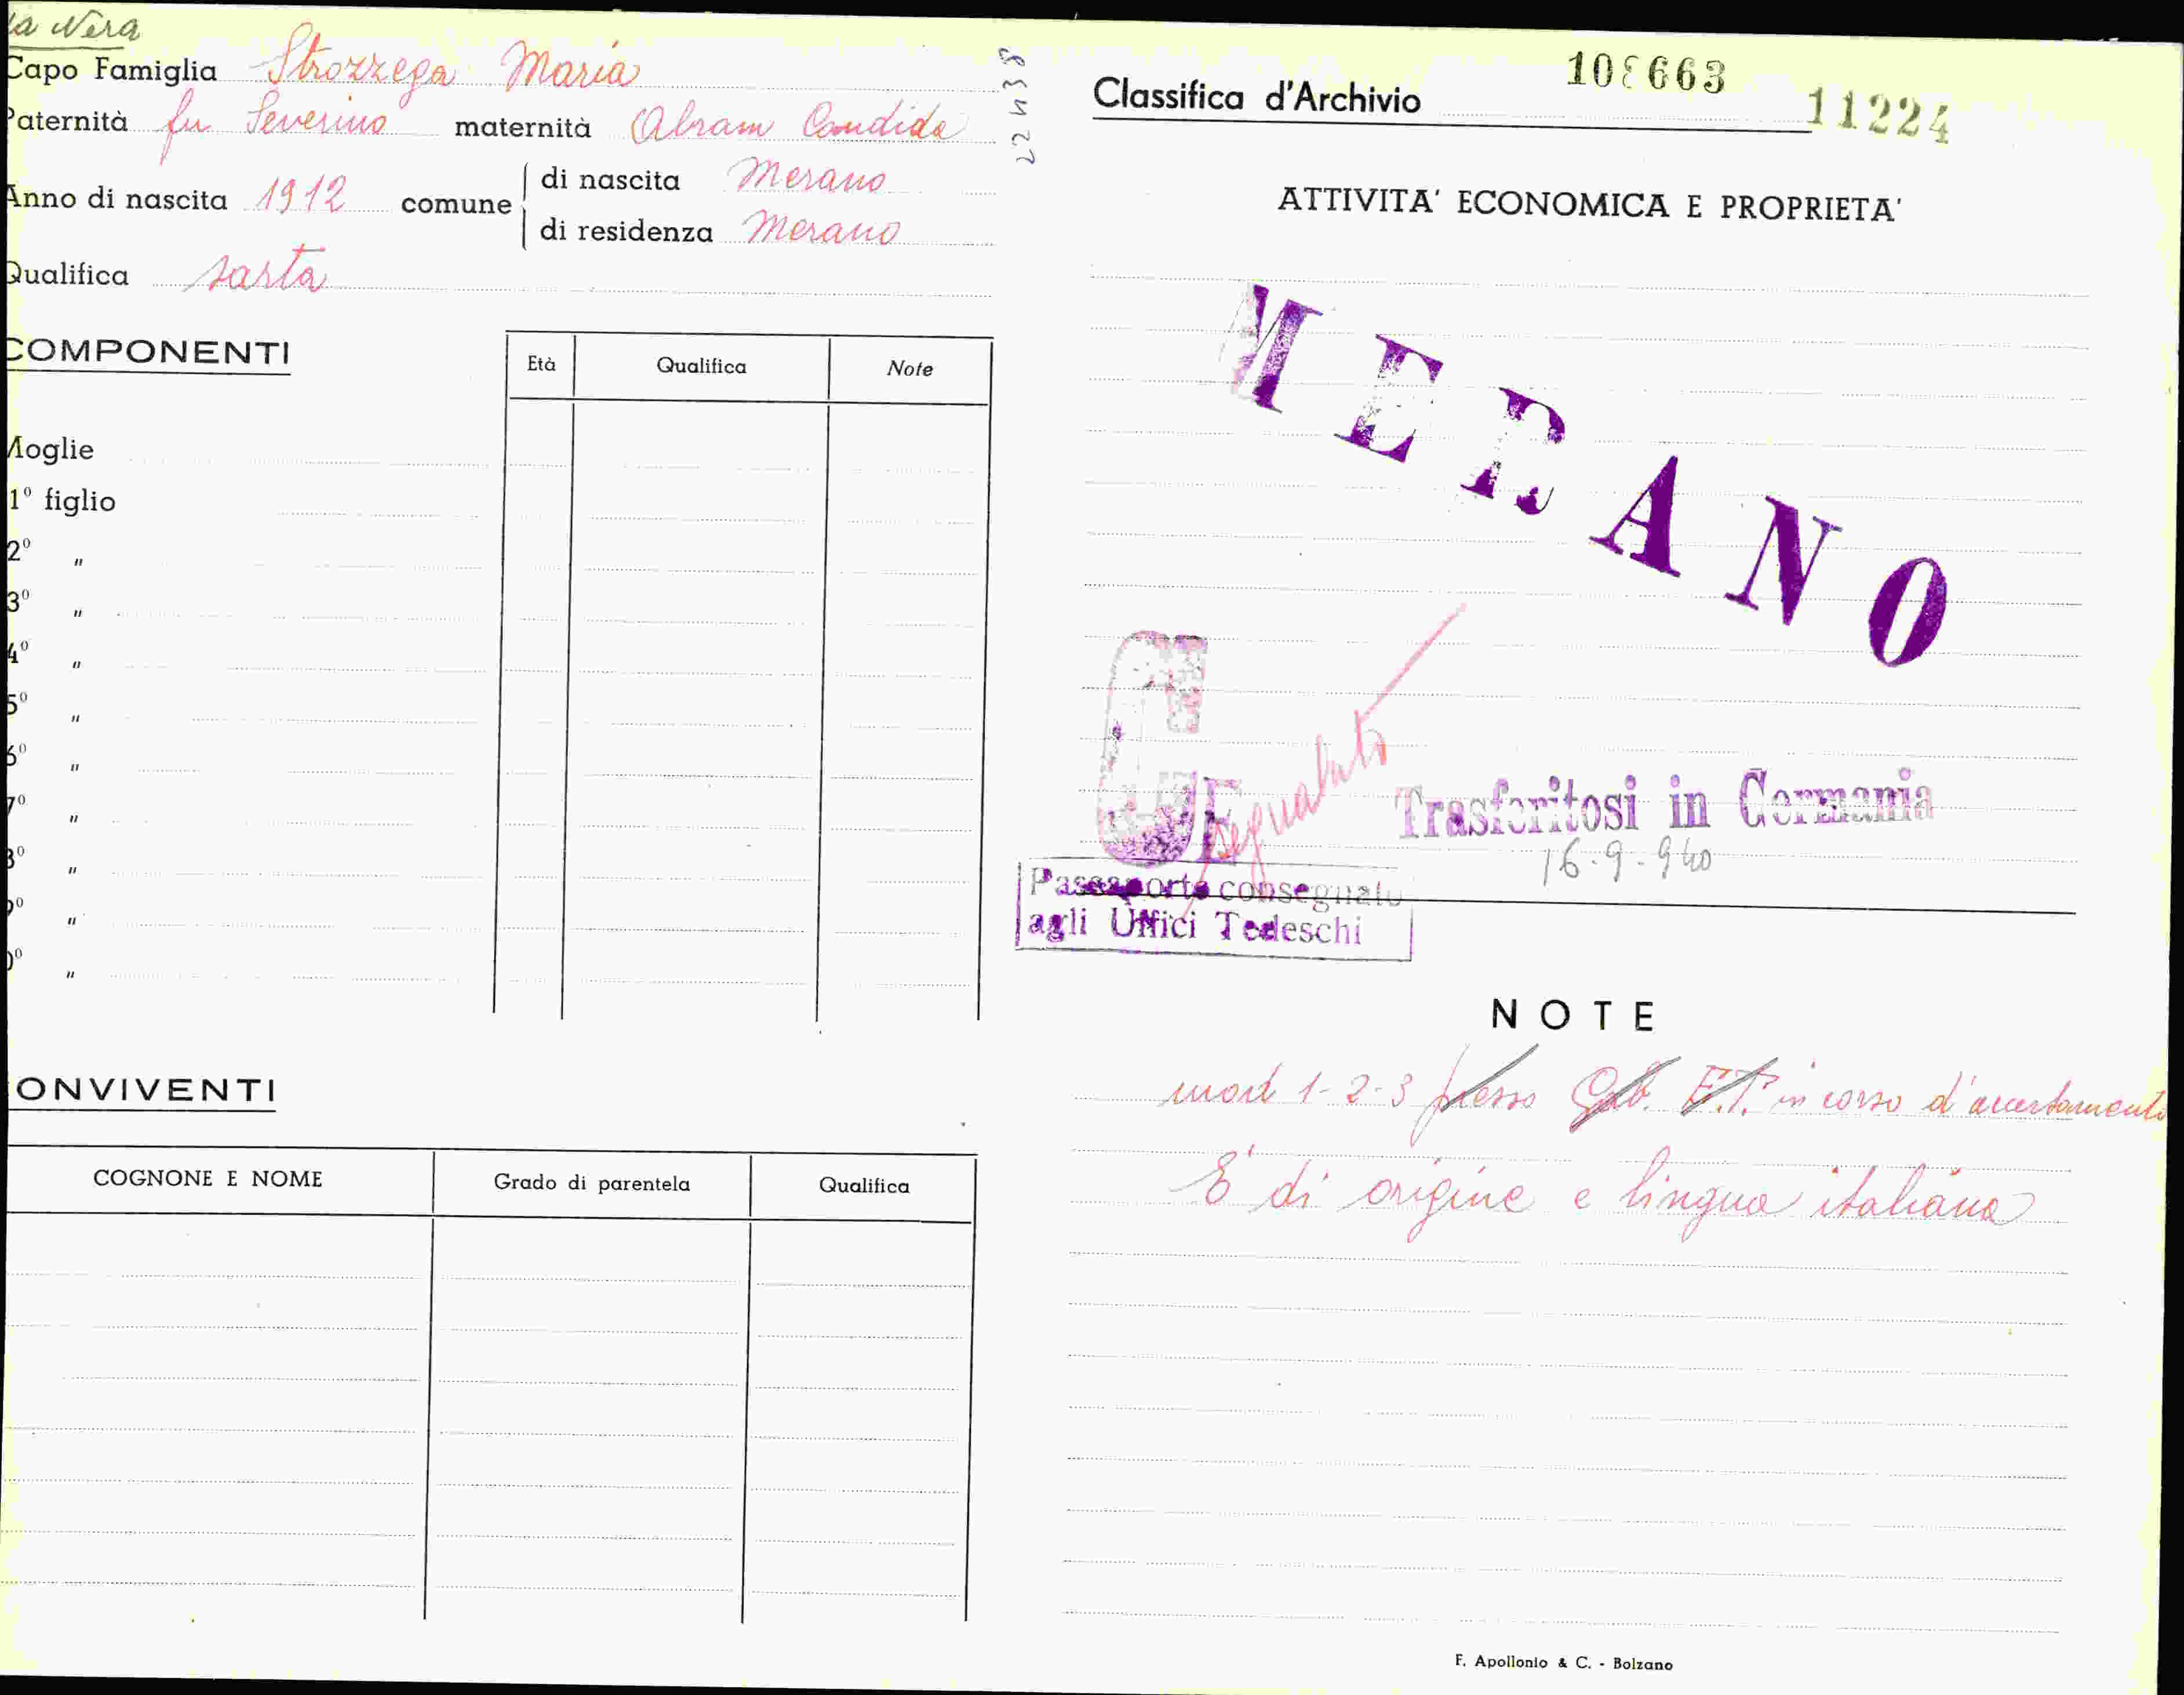 la Vera
Capo Famiglia Strozzega Maria
Paternità fu Severino maternità Abram Candida
Anno di nascita 1912 comune di nascita Merano
di residenza Merano
Qualifica sarta
COMPONENTI
Età Qualifica Note
Moglie
1º figlio
2º "
3º "
4º "
5º "
6º "
7º "
8º "
9º "
0º "
ONVIVENTI
COGNONE E NOME Grado di parentela Qualifica
Classifica d'Archivio 108663
11224
ATTIVITA' ECONOMICA E PROPRIETA'
MERANO
GE
segnalato
Trasferitosi in Germania
16-9-940
Passaporto consegnato
agli Uffici Tedeschi
NOTE
mod 1-2-3 presso Gab. E.T. in corso d'accertamento
E' di origine e lingua italiana
F. Apollonio & C. - Bolzano